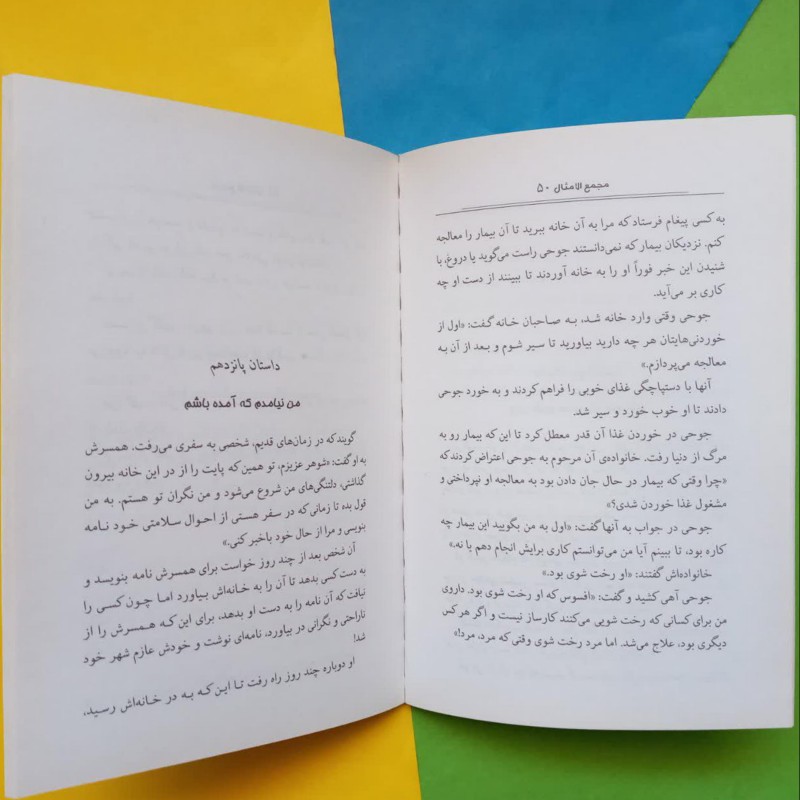 مجمع الامثال ۵۰
به کسی پیغام فرستاد که مرا به آن خانه ببرید تا آن بیمار را معالجه
کنم. نزدیکان بیمار که نمی‌دانستند جوحی راست می‌گوید یا دروغ، با
شنیدن این خبر فوراً او را به خانه آوردند تا ببینند از دست او چه
کاری بر می‌آید.
جوحی وقتی وارد خانه شد، به صاحبان خانه گفت: «اول از
خوردنی‌هایتان هر چه دارید بیاورید تا سیر شوم و بعد از آن به
معالجه می‌پردازم.»
آنها با دستپاچگی غذای خوبی را فراهم کردند و به خورد جوحی
دادند تا او خوب خورد و سیر شد.
جوحی در خوردن غذا آن قدر معطل کرد تا این که بیمار رو به
مرگ از دنیا رفت. خانواده‌ی آن مرحوم به جوحی اعتراض کردند که
«چرا وقتی که بیمار در حال جان دادن بود به معالجه او نپرداختی و
مشغول غذا خوردن شدی؟»
جوحی در جواب به آنها گفت: «اول به من بگویید این بیمار چه
کاره بود، تا ببینم آیا من می‌توانستم کاری برایش انجام دهم یا نه.»
خانواده‌اش گفتند: «او رخت شوی بود.»
جوحی آهی کشید و گفت: «افسوس که او رخت شوی بود. داروی
من برای کسانی که رخت شویی می‌کنند کارساز نیست و اگر هر کس
دیگری بود، علاج می‌شد. اما مرد رخت شوی وقتی که مرد، مرد!»
داستان پانزدهم
من نیامدم که آمده باشم
گویند که در زمان‌های قدیم، شخصی به سفری می‌رفت. همسرش
به او گفت: «شوهر عزیزم، تو همین که پایت را از در این خانه بیرون
گذاشتی، دلتنگی‌های من شروع می‌شود و من نگران تو هستم. به من
قول بده تا زمانی که در سفر هستی از احوال سلامتی خود نامه
بنویسی و مرا از حال خود باخبر کنی.»
آن شخص بعد از چند روز خواست برای همسرش نامه بنویسد و
به دست کسی بدهد تا آن را به خانه‌اش بیاورد اما چون کسی را
نیافت که آن نامه را به دست او بدهد، برای این که همسرش را از
ناراحتی و نگرانی در بیاورد، نامه‌ای نوشت و خودش عازم شهر خود
شد!
او دوباره چند روز راه رفت تا این که به در خانه‌اش رسید،